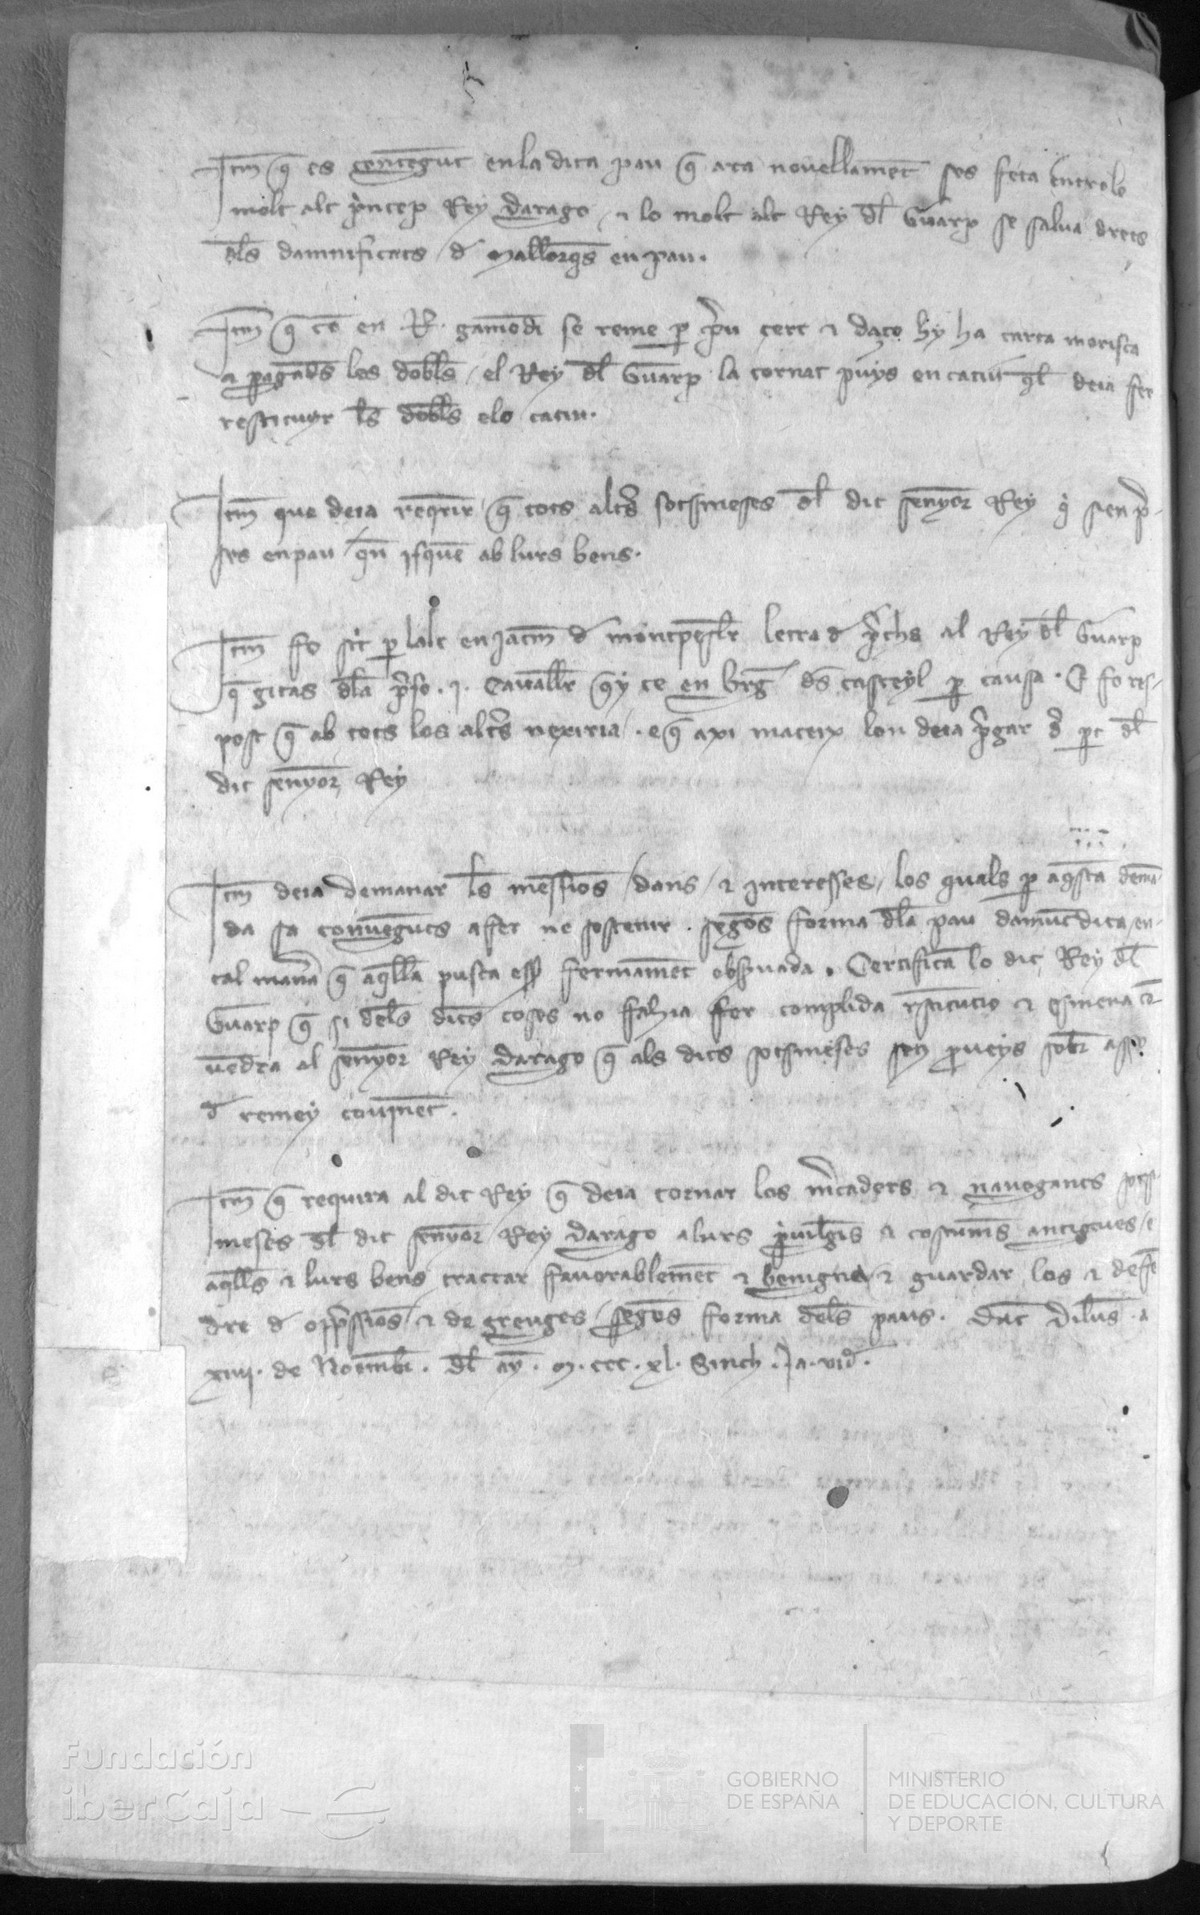 Itm̄ q̄ es contengut en la dita pau q̄ ara novellament ses feta entrel
molt alt p̄ncep Rey darago / ⁊ lo molt alt Rey dl̄ Guarp se salva drets
dl̄s damnificats / d Mallorqs en pau.
Itm̄ q̄ en R. se reme p p̄u cert ⁊ daço hy ha carta morisca
⁊ los dobl̄s / el Rey dl̄ Guarp la tornat puys en catiu deia fer
restituyr l̄s dobl̄s elo catiu.
Itm̄ que deia reqrir / q̄ tots altr̄s sotsmeses dl̄ dit senyor Rey q̇ sien p̄-
ses en pau isquen ab lurs bens.
Itm̄ fo p lalt en Jacm̄ d letra d p̄chs al Rey dl̄ Guarp
q̄ gitas dl̄a p̄so .j. Cavallr̄ qy te p causa. E fo res-
post q̄ ab tots los altr̄s nexiria. e q̄ axi mateix lon deia p̄gar d pt dl̄
dit senyor Rey
Itm̄ deia demanar l̄s messios / dans / ⁊ interesses / los quals p aq̄sta demā-
da sa afer ne sostenir. segons forma dl̄a pau damūt dita / en-
tal man̄a q̄ aq̄lla pusca ess̄ fermament obs̄vada. Certifica lo dit Rey dl̄
Guarp q̄ si dels dites coses no fahia fer complida r̄stitucio ⁊ esmena
al senyor Rey darago q̄ als dits sotsmeses sobr̄
d remey covinēt.
Itm̄ q̄ requira al dit Rey q̄ deia tornar los m̄caders ⁊ navegants sots-
meses dl̄ dit senyor Rey darago a lurs p̄vilegis ⁊ costums antigues / e
aq̄lls ⁊ lurs bens tractar favorablement ⁊ benigna ⁊ guardar los ⁊ defē-
dre d opp̄ssios / ⁊ de greuges / segons forma dels paus. Dat diluns a
xiiij. de Noembr̄. dl̄ ay. M. ccc. xl. Sinch. Ja. vid.
Fundación
iberCaja
GOBIERNO
DE ESPAÑA
MINISTERIO
DE EDUCACIÓN, CULTURA
Y DEPORTE